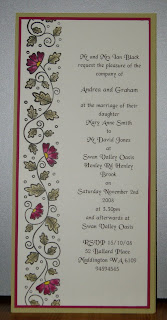 Mr and Mrs Ian Black
request the pleasure of the
company of
Andrea and Graham
at the marriage of their
daughter
Mary Anne Smith
to
Mr David Jones
at
Swan Valley Oasis
Henley Rd Henley
Brook
on
Saturday November 2nd
2008
at 3.30pm
and afterwards at
Swan Valley Oasis
RSVP 03/10/08
50 Ballard Place
Maddington WA 6109
94594565